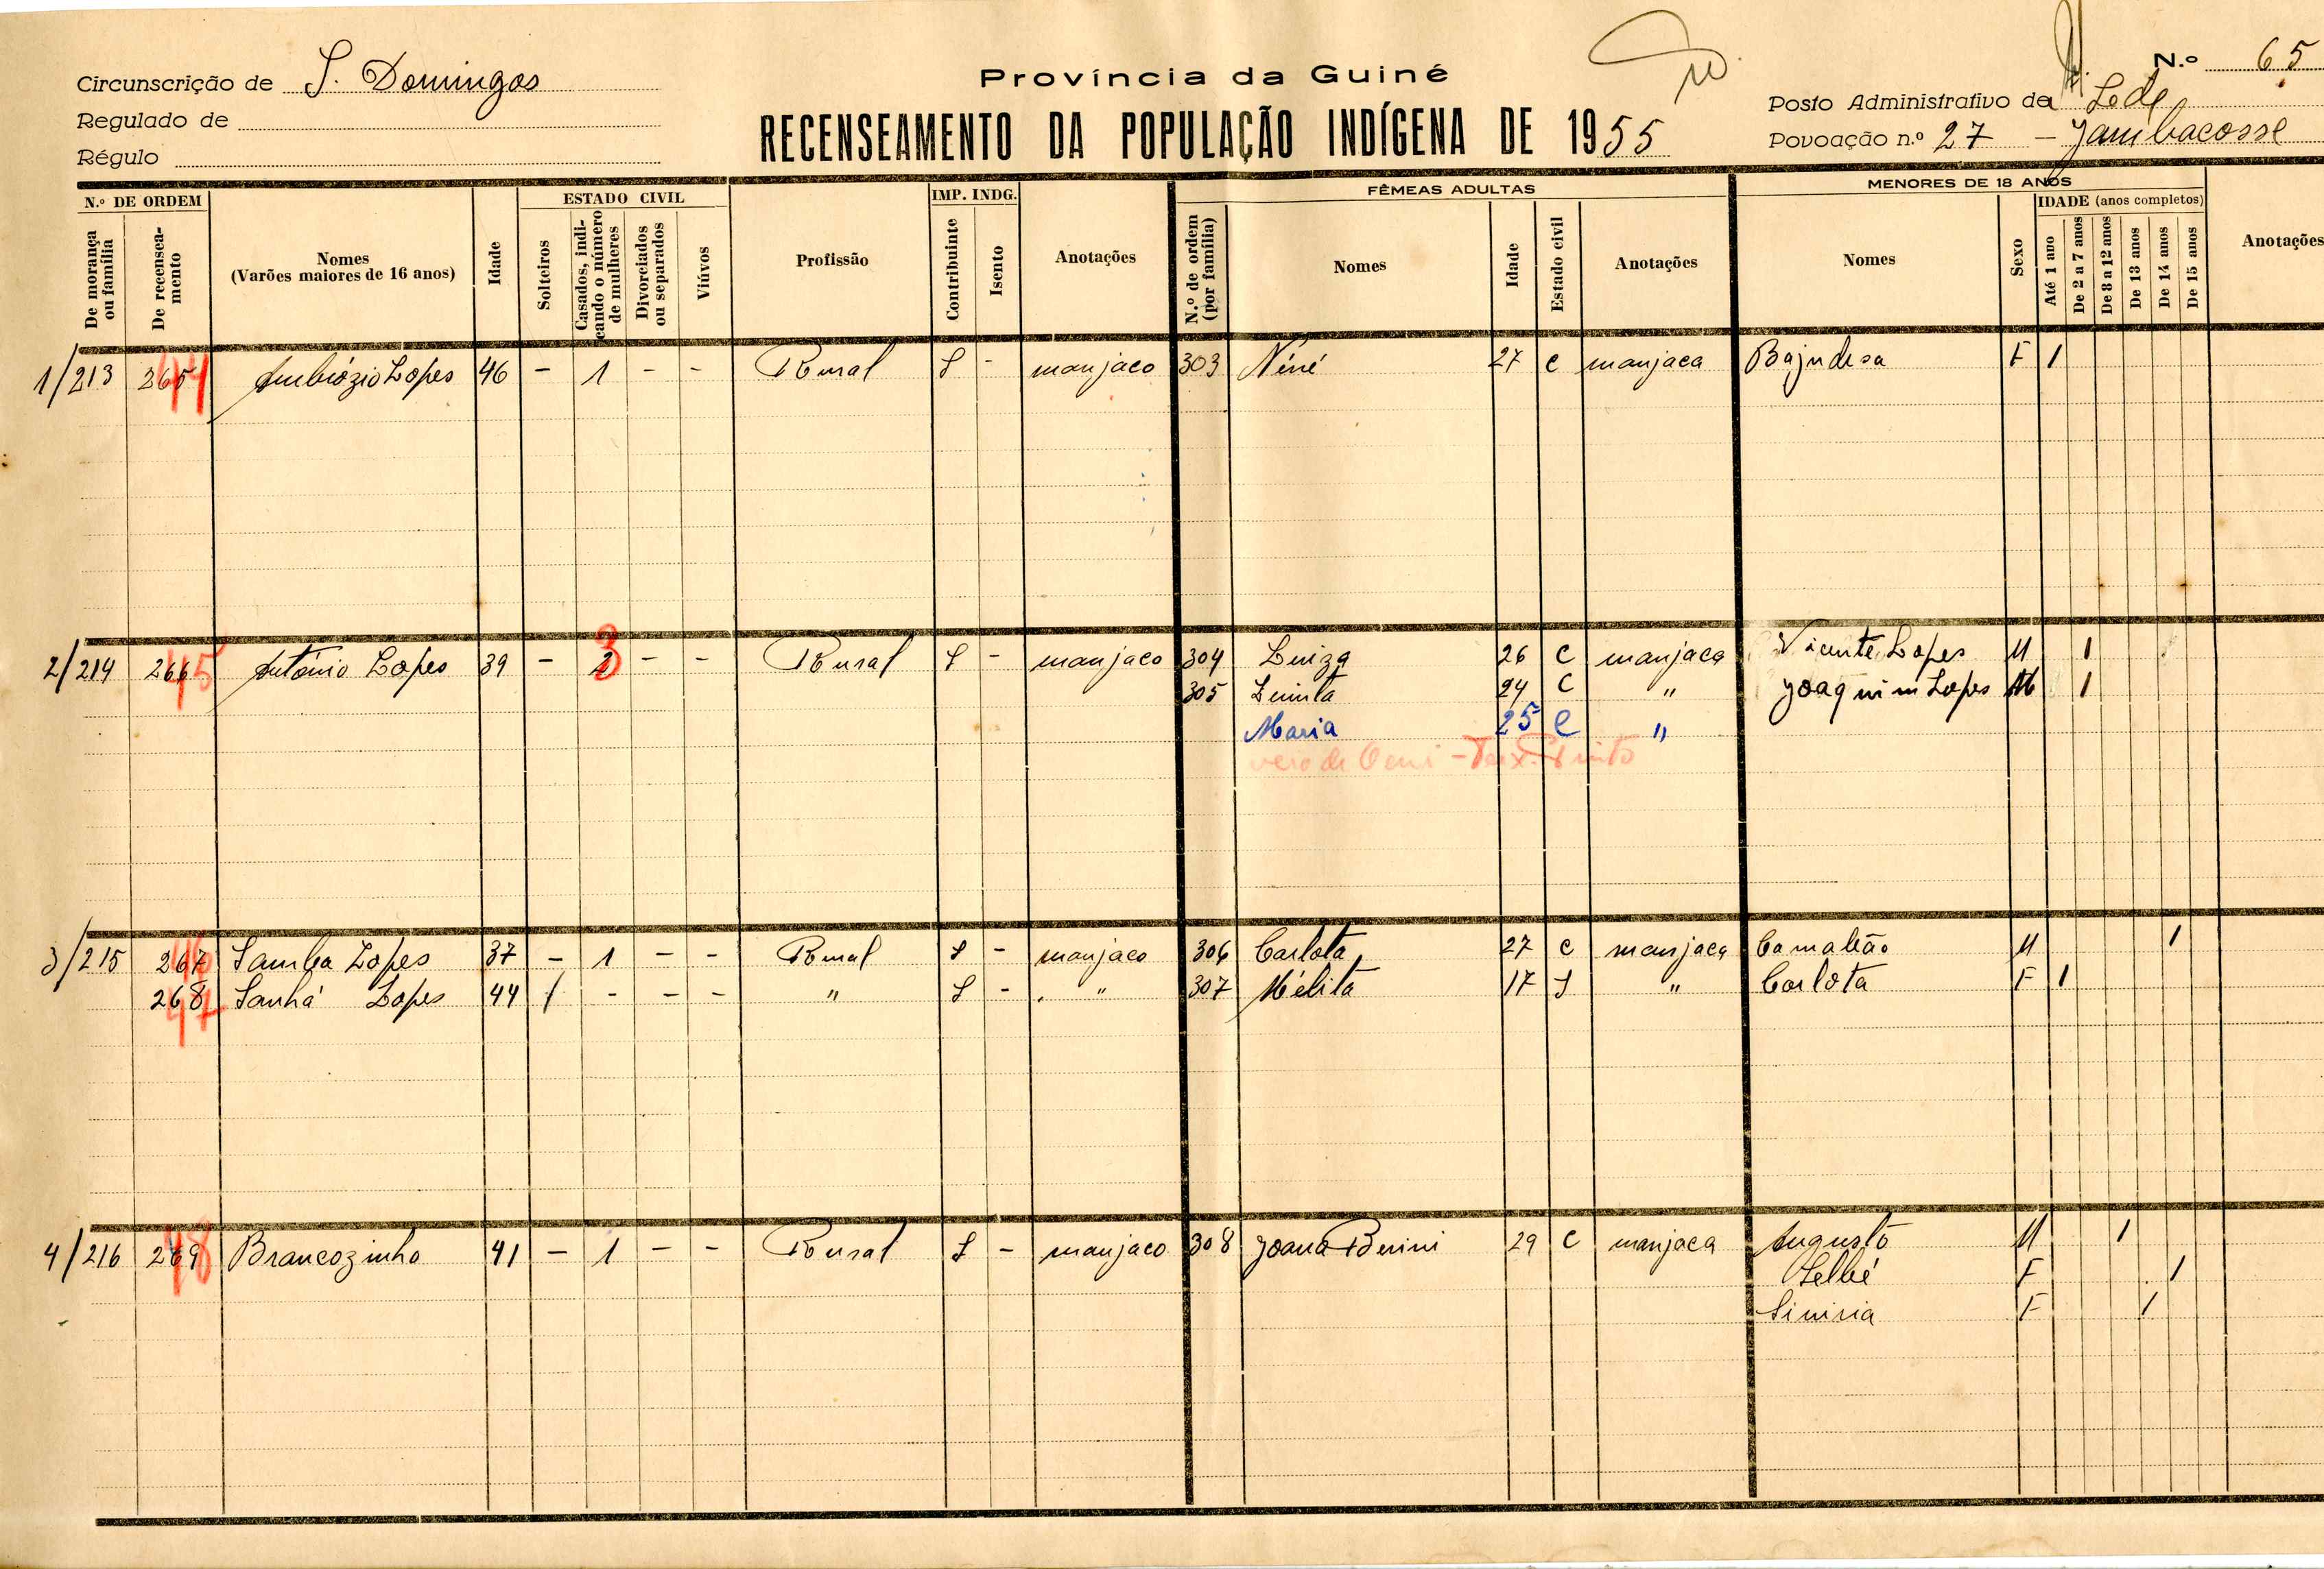 Província da Guiné
N.º 65
Circunscrição de S. Domingos
Regulado de
Régulo
RECENSEAMENTO DA POPULAÇÃO INDÍGENA DE 1955
Posto Administrativo da Sede
Povoação n.º 27 - Jambacosse
N.º DE ORDEM
De morança ou família
De recenseamento
Nomes
(Varões maiores de 16 anos)
Idade
ESTADO CIVIL
Solteiros
Casados, indicando o número de mulheres
Divorciados ou separados
Viúvos
Profissão
IMP. INDG.
Contribuinte
Isento
Anotações
FÊMEAS ADULTAS
N.º de ordem (por família)
Nomes
Idade
Estado civil
Anotações
MENORES DE 18 ANOS
Nomes
Sexo
IDADE (anos completos)
Até 1 ano
De 2 a 7 anos
De 8 a 12 anos
De 13 anos
De 14 anos
De 15 anos
Anotações
1/213 265 44 Ambrózio Lopes 46 - 1 - - Rural S - manjaco 303 Néné 27 C manjaca Bajudesa F 1
2/214 266 45 António Lopes 39 - 2 3 - - Rural S - manjaco 304 Luiza 26 C manjaca Vicente Lopes M 1
305 24 C " Joaquim Lopes M 1
Maria 25 C "
3/215 267 46 Samba Lopes 37 - 1 - - Rural S - manjaco 306 Carlota 27 C manjaca Camaleão M 1
268 47 Sanhá Lopes 44 1 - - - " S - " 307 Mélita 17 S " Carlota F 1
4/216 269 48 Brancozinho 41 - 1 - - Rural S - manjaco 308 Joana 29 C manjaca Augusto M 1
F 1
F 1